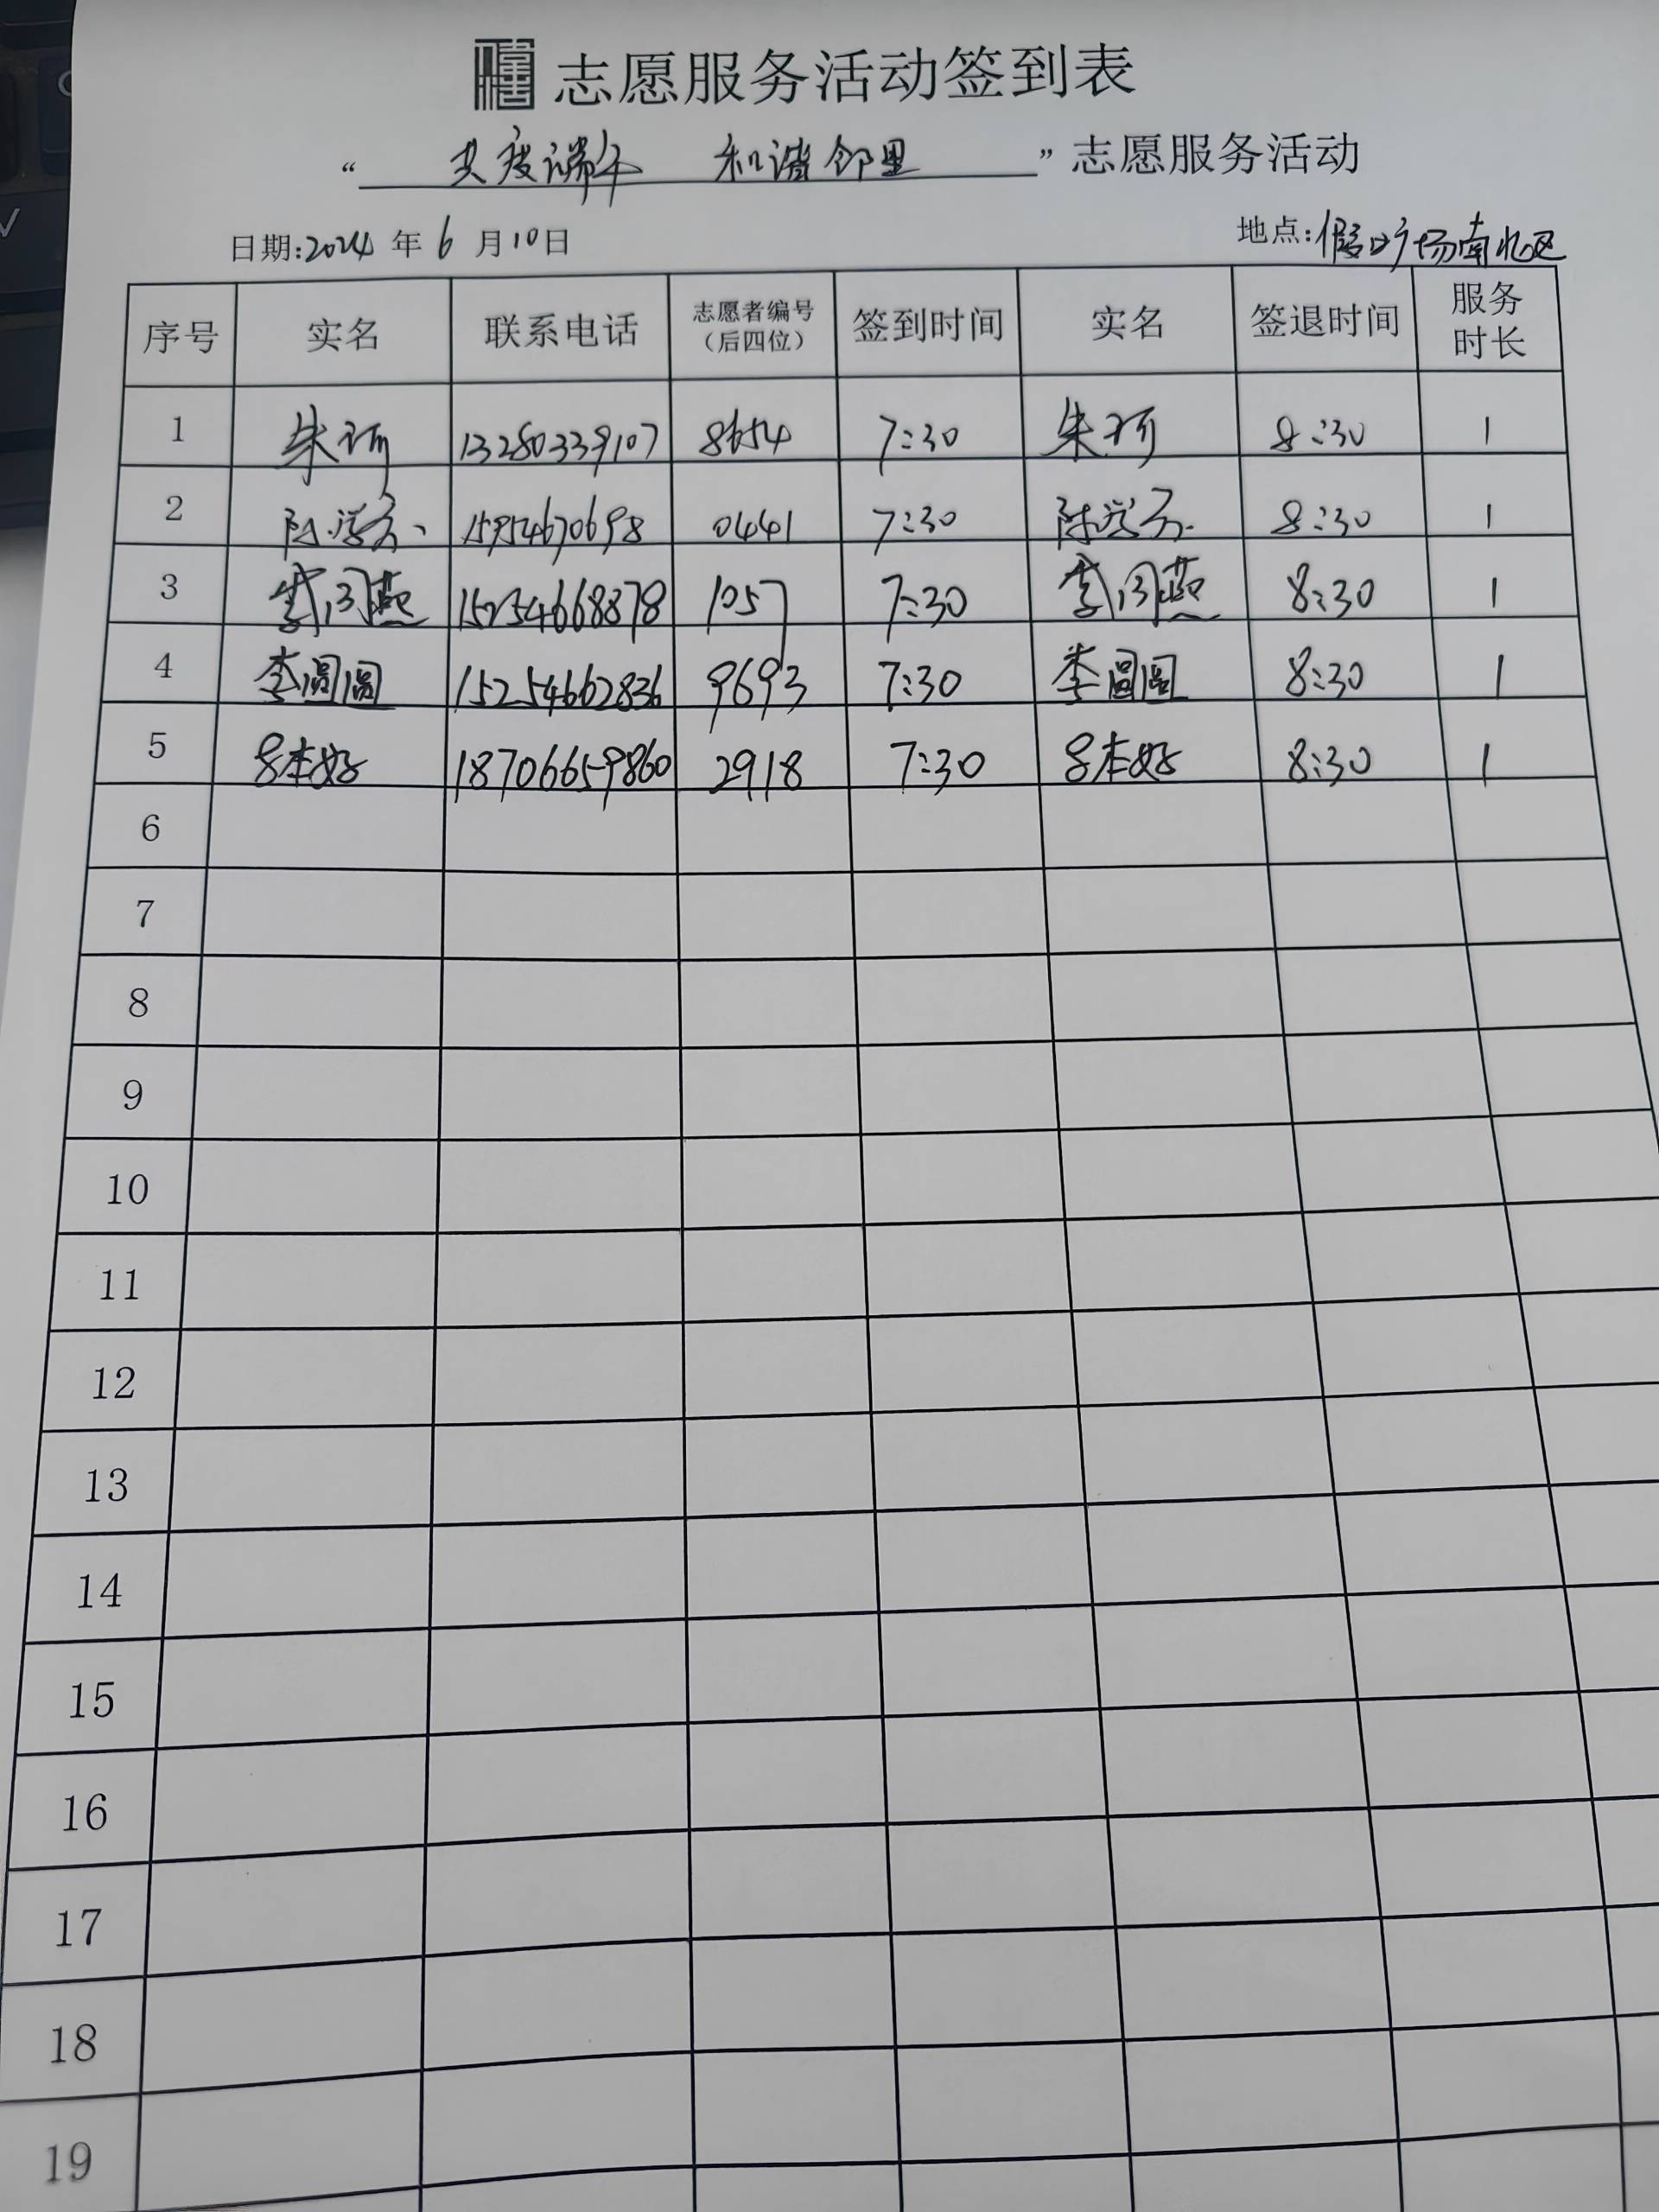 志愿服务活动签到表
“共度端午 和谐邻里”志愿服务活动
日期:2024年6月10日 地点:假日广场南北区
序号 实名 联系电话 志愿者编号（后四位） 签到时间 实名 签退时间 服务时长
1 朱珂 13280339107 8654 7:30 朱珂 8:30 1
2 陈学芳 15954670698 0441 7:30 陈学芳 8:30 1
3 李闪燕 15254668878 1057 7:30 李闪燕 8:30 1
4 李圆圆 15254662836 9693 7:30 李圆圆 8:30 1
5 吕本好 18706659860 2918 7:30 吕本好 8:30 1
6
7
8
9
10
11
12
13
14
15
16
17
18
19